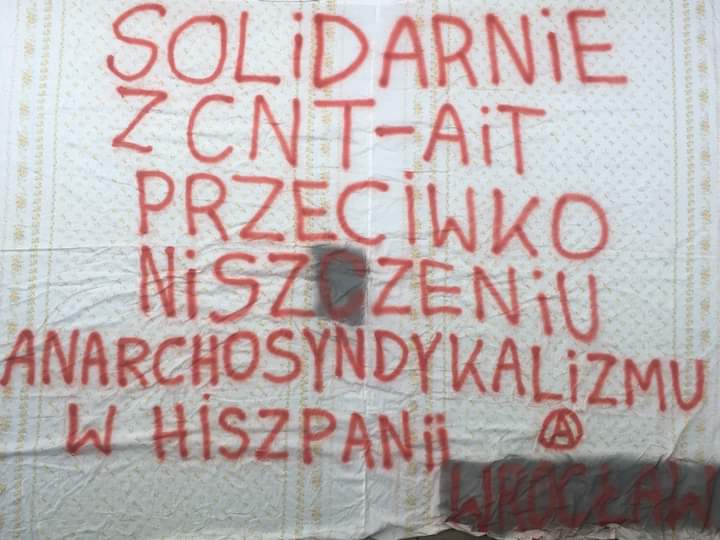 SOLiDARNiE
Z CNT-AiT
PRZECiWKO
NiSZCZENiU
ANARCHOSYNDYKALiZMU
W HiSZPANii
Ⓐ
WROCŁAW